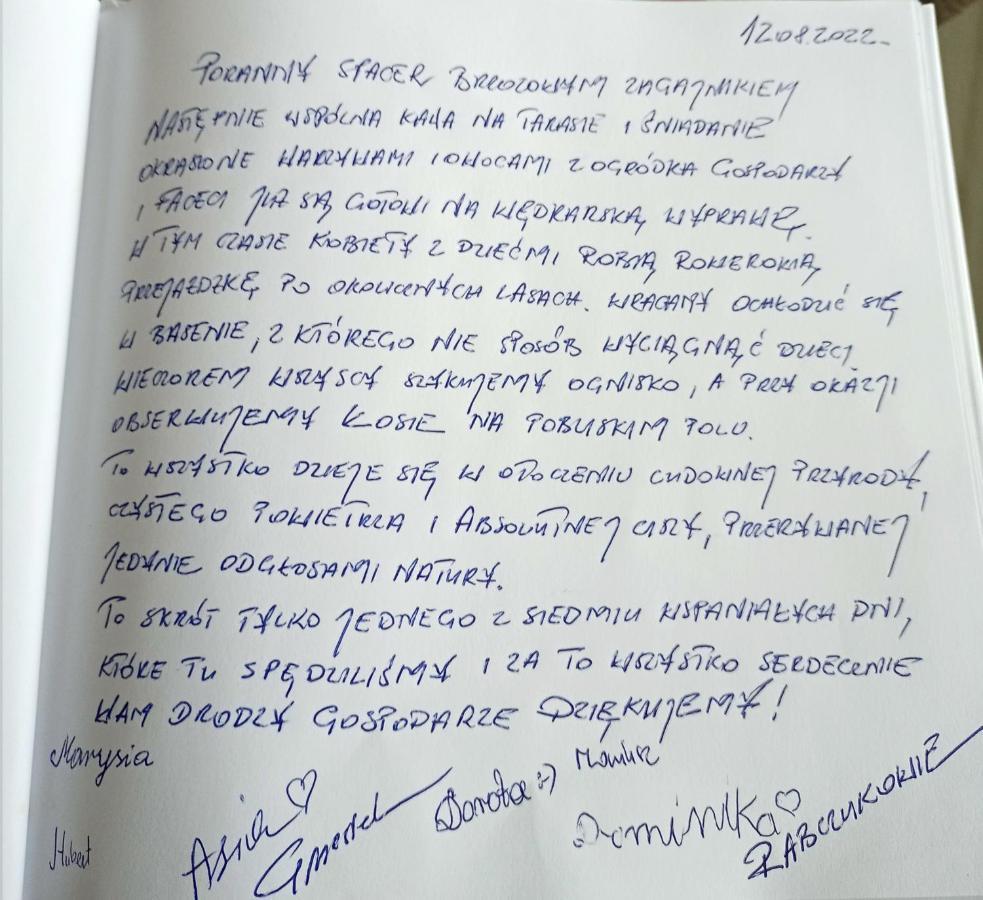 12.08.2022.
PORANNY SPACER BRZOZOWYM ZAGAJNIKIEM
NASTĘPNIE WSPÓLNA KAWA NA TARASIE I ŚNIADANIE
OKRASZONE WARZYWAMI I OWOCAMI Z OGRÓDKA GOSPODARZY
I FACECI JUŻ SĄ GOTOWI NA WĘDKARSKĄ WYPRAWĘ.
W TYM CZASIE KOBIETY Z DZIEĆMI ROBIĄ ROWEROWĄ
PRZEJAŻDZKĘ PO OKOLICZNYCH LASACH. WRACAMY OCHŁODZIĆ SIĘ
W BASENIE, Z KTÓREGO NIE SPOSÓB WYCIĄGNĄĆ DZIECI
WIECZOREM WSZYSCY SZYKUJEMY OGNISKO, A PRZY OKAZJI
OBSERWUJEMY ŁOSIE NA POBLISKIM POLU.
TO WSZYSTKO DZIEJE SIĘ W OTOCZENIU CUDOWNEJ PRZYRODY,
CZYSTEGO POWIETRZA I ABSOLUTNEJ CISZY, PRZERYWANEJ
JEDYNIE ODGŁOSAMI NATURY.
TO SKRÓT TYLKO JEDNEGO Z SIEDMIU WSPANIAŁYCH DNI,
KTÓRE TU SPĘDZILIŚMY I ZA TO WSZYSTKO SERDECZNIE
WAM DRODZY GOSPODARZE DZIĘKUJEMY!
Marysia
Asia ♡
Dorota :)
Mariusz
Dominika ♡
Hubert
RABCZUKOWIE